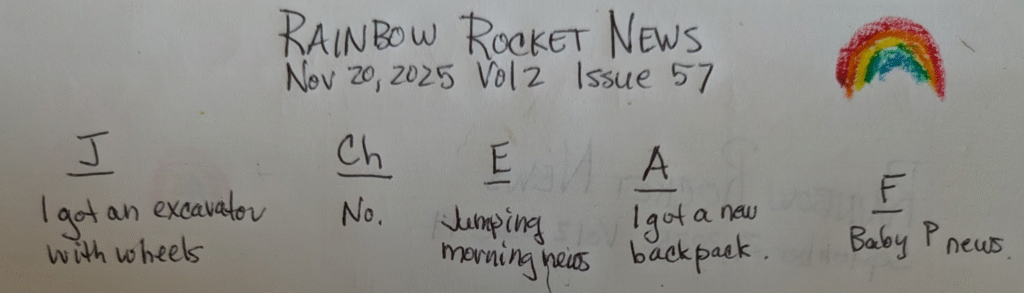 RAINBOW ROCKET NEWS
Nov 20, 2025 Vol 2 Issue 57
J
I got an excavator
with wheels
Ch
No.
E
Jumping
morning news
A
I got a new
backpack.
F
Baby P news.